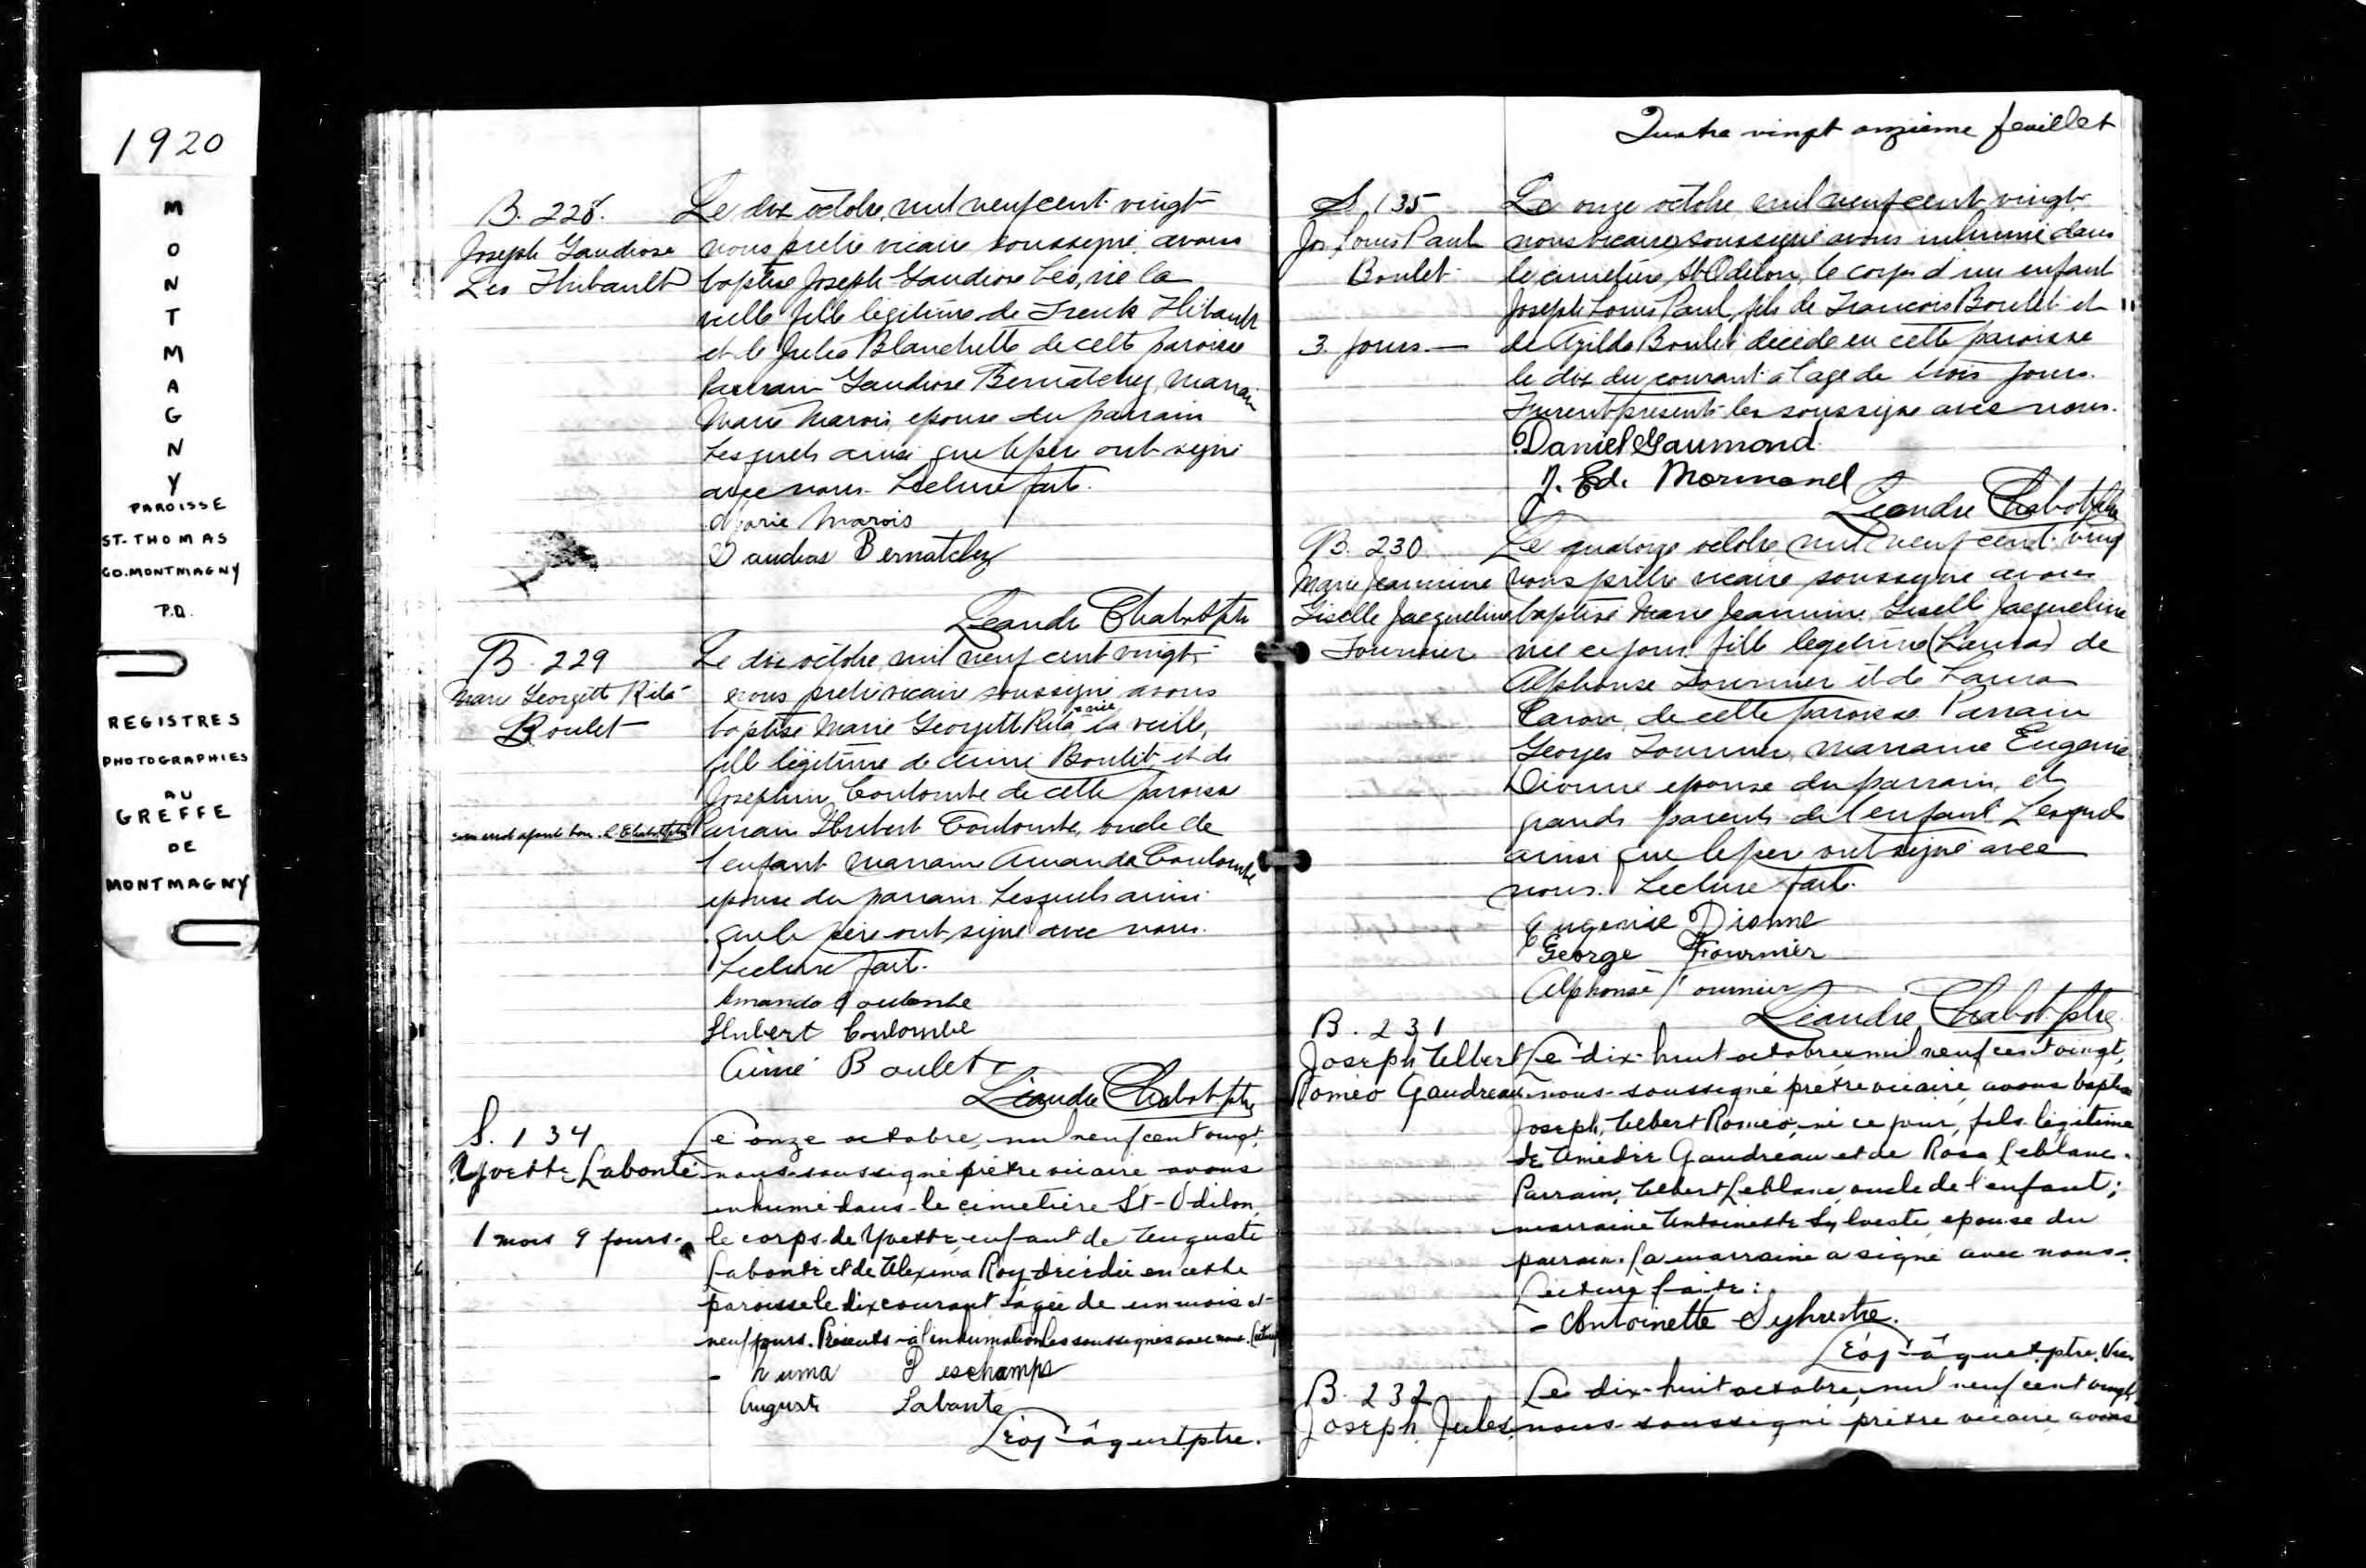 1920
MONTMAGNY
PAROISSE
ST-THOMAS
CO. MONTMAGNY
P.Q.
REGISTRES
PHOTOGRAPHIES
AU
GREFFE
DE
MONTMAGNY
B. 228.
Joseph Gaudiose
Léo Thibault
Le dix octobre, mil neuf cent vingt
nous prêtre vicaire soussigné avons
baptisé Joseph Gaudiose Léo, né la
veille fille légitime de Frank Thibault
et de Julia Blanchette de cette paroisse
Parrain Gaudiose Bernatchez, Marraine
Marie Marois, epouse du parrain
Lesquels ainsi que le père ont signé
avec nous. Lecture faite.
Marie Marois
Gaudias Bernatchez
Léandre Chabot ptre
B. 229
Marie Georgette Rita
Boulet
Le dix octobre, mil neuf cent vingt,
nous prêtre vicaire soussigné avons
baptisé Marie Georgette Rita née la veille,
fille légitime de Aimé Boulet et de
Josephine Coulombe de cette paroisse
Parrain Hubert Coulombe, oncle de
l'enfant marraine Amanda Coulombe
epouse du parrain. Lesquels ainsi
que le père ont signé avec nous.
Lecture faite.
Amanda Coulombe
Hubert Coulombe
Aimé Boulet
Léandre Chabot ptre
S. 134
Yvette Labonté
1 mois 9 jours.
Le onze octobre, mil neuf cent vingt,
nous soussigné prêtre vicaire avons
inhumé dans le cimetière St-Odilon,
le corps de Yvette, enfant de Auguste
Labonté et de Alexina Roy, décédée en cette
paroisse le dix courant âgée de un mois et
neuf jours. Présents à l'inhumation les soussignés avec nous. Lecture
- Numa Deschamps
Auguste Labonté
Léo Pâquet ptre.
Quatre vingt onzième feuillet
S. 135
Jos. Louis Paul
Boulet
3 jours. —
Le onze octobre mil neuf cent vingt
nous vicaire soussigné avons inhumé dans
le cimetière St Odilon, le corps d'un enfant
Joseph Louis Paul, fils de Francois Boulet et
de Azilda Boulet décédé en cette paroisse
le dix du courant à l'age de trois jours.
Furent présents les soussignés avec nous.
Daniel Gaumond
J. Ed. Normand
Léandre Chabot ptre
B. 230
Marie Jeannine
Giselle Jacqueline
Fournier
Le quatorze octobre mil neuf cent vingt
nous prêtre vicaire soussigné avons
baptisé Marie Jeannine Giselle Jacqueline
née ce jour fille légitime (Laura) de
Alphonse Fournier et de Laura
Caron, de cette paroisse. Parrain
Georges Fournier, marraine Eugenie
Dionne epouse du parrain, et
grands parents de l'enfant. Lesquels
ainsi que le père ont signé avec
nous. Lecture faite.
Eugenie Dionne
George Fournier
Alphonse Fournier
Léandre Chabot ptre
B. 231
Joseph Albert
Roméo Gaudreau
Le dix-huit octobre, mil neuf cent vingt,
nous soussigné prêtre vicaire, avons baptisé
Joseph, Albert Roméo, né ce jour, fils légitime
de Amédée Gaudreau et de Rosa Leblanc.
Parrain, Albert Leblanc, oncle de l'enfant;
marraine Antoinette Sylvestre, epouse du
parrain. La marraine a signé avec nous.
Lecture faite:
- Antoinette Sylvestre.
Léo Pâquet, ptre. Vic.
B. 232
Joseph Jules
Le dix-huit octobre, mil neuf cent vingt,
nous soussigné prêtre vicaire avons